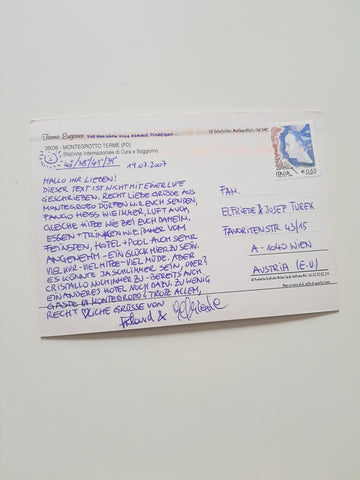 Terme Euganee
35036 - MONTEGROTTO TERME (PD)
Stazione Internazionale di Cura e Soggiorno
19.07.2007
HALLO IHR LIEBEN!
DIESER TEXT IST NICHT MIT EINER LUPE
GESCHRIEBEN. RECHT LIEBE GRÜSSE AUS
MONTEGROTTO DÜRFEN WIR EUCH SENDEN,
FANGO HEISS WIE IMMER, LUFT AUCH,
GLEICHE HITZE WIE BEI EUCH DAHEIM.
ESSEN + TRINKEN WIE IMMER VOM
FEINSTEN, HOTEL + POOL AUCH SEHR
ANGENEHM - EIN GLÜCK HIER ZU SEIN.
VIEL KUR - VIEL HITZE - VIEL MÜDE. ABER
ES KÖNNTE JA SCHLIMMER SEIN, ODER?
CRISTALLO NOCH IMMER ZU - BEREITS AUCH
EIN ANDERES HOTEL NOCH DAZU. ZU WENIG
GÄSTE IN MONTEGROTTO! TROTZ ALLEM,
RECHT ♥LICHE GRÜSSE VON
&
ITALIA
€ 0,65
FAM.
ELFRIEDE & JOSEF TUREK
FAVORITENSTR. 43/15
A - 1040 WIEN
AUSTRIA (E.U)